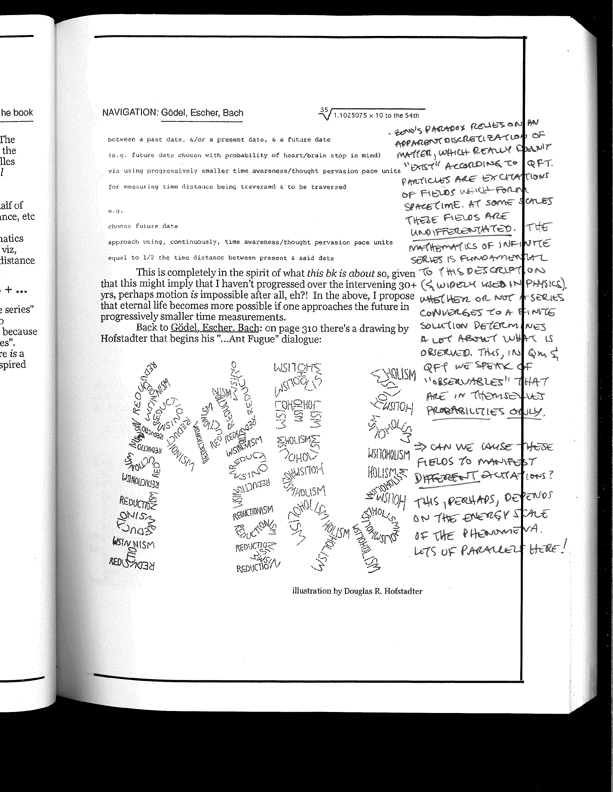 he book
The
the
lles
l
alf of
ance, etc
natics
viz,
distance
+ ...
e series"
o
because
es".
re is a
spired
NAVIGATION: Gödel, Escher, Bach
35√1.1025075 x 10 to the 54th
between a past date, &/or a present date, & a future date
(e.g. future date chosen with probability of heart/brain stop in mind)
via using progressively smaller time awareness/thought pervasion pace units
for measuring time distance being traversed & to be traversed
e.g.
choose future date
approach using, continuously, time awareness/thought pervasion pace units
equal to 1/2 the time distance between present & said date
This is completely in the spirit of what this bk is about so, given
that this might imply that I haven't progressed over the intervening 30+
yrs, perhaps motion is impossible after all, eh?! In the above, I propose
that eternal life becomes more possible if one approaches the future in
progressively smaller time measurements.
Back to Gödel, Escher, Bach: on page 310 there's a drawing by
Hofstadter that begins his "...Ant Fugue" dialogue:
- ZENO'S PARADOX RELIES ON AN
APPARENT DISCRETIZATION OF
MATTER, WHICH REALLY DOESN'T
"EXIST" ACCORDING TO QFT.
PARTICLES ARE EXCITATIONS
OF FIELDS WHICH FORM
SPACETIME. AT SOME SCALES
THESE FIELDS ARE
UNDIFFERENTIATED. THE
MATHEMATICS OF INFINITE
SERIES IS FUNDAMENTAL
TO THIS DESCRIPTION
(& WIDELY USED IN PHYSICS).
WHETHER OR NOT A SERIES
CONVERGES TO A FINITE
SOLUTION DETERMINES
A LOT ABOUT WHAT IS
OBSERVED. THIS, IN QM &
QFT WE SPEAK OF
"OBSERVABLES" THAT
ARE IN THEMSELVES
PROBABILITIES ONLY.
⇒ CAN WE CAUSE THESE
FIELDS TO MANIFEST
DIFFERENT EXCITATIONS?
THIS, PERHAPS, DEPENDS
ON THE ENERGY SCALE
OF THE PHENOMENA.
LOTS OF PARALLELS HERE!
REDUCTIONISM
HOLISM
illustration by Douglas R. Hofstadter